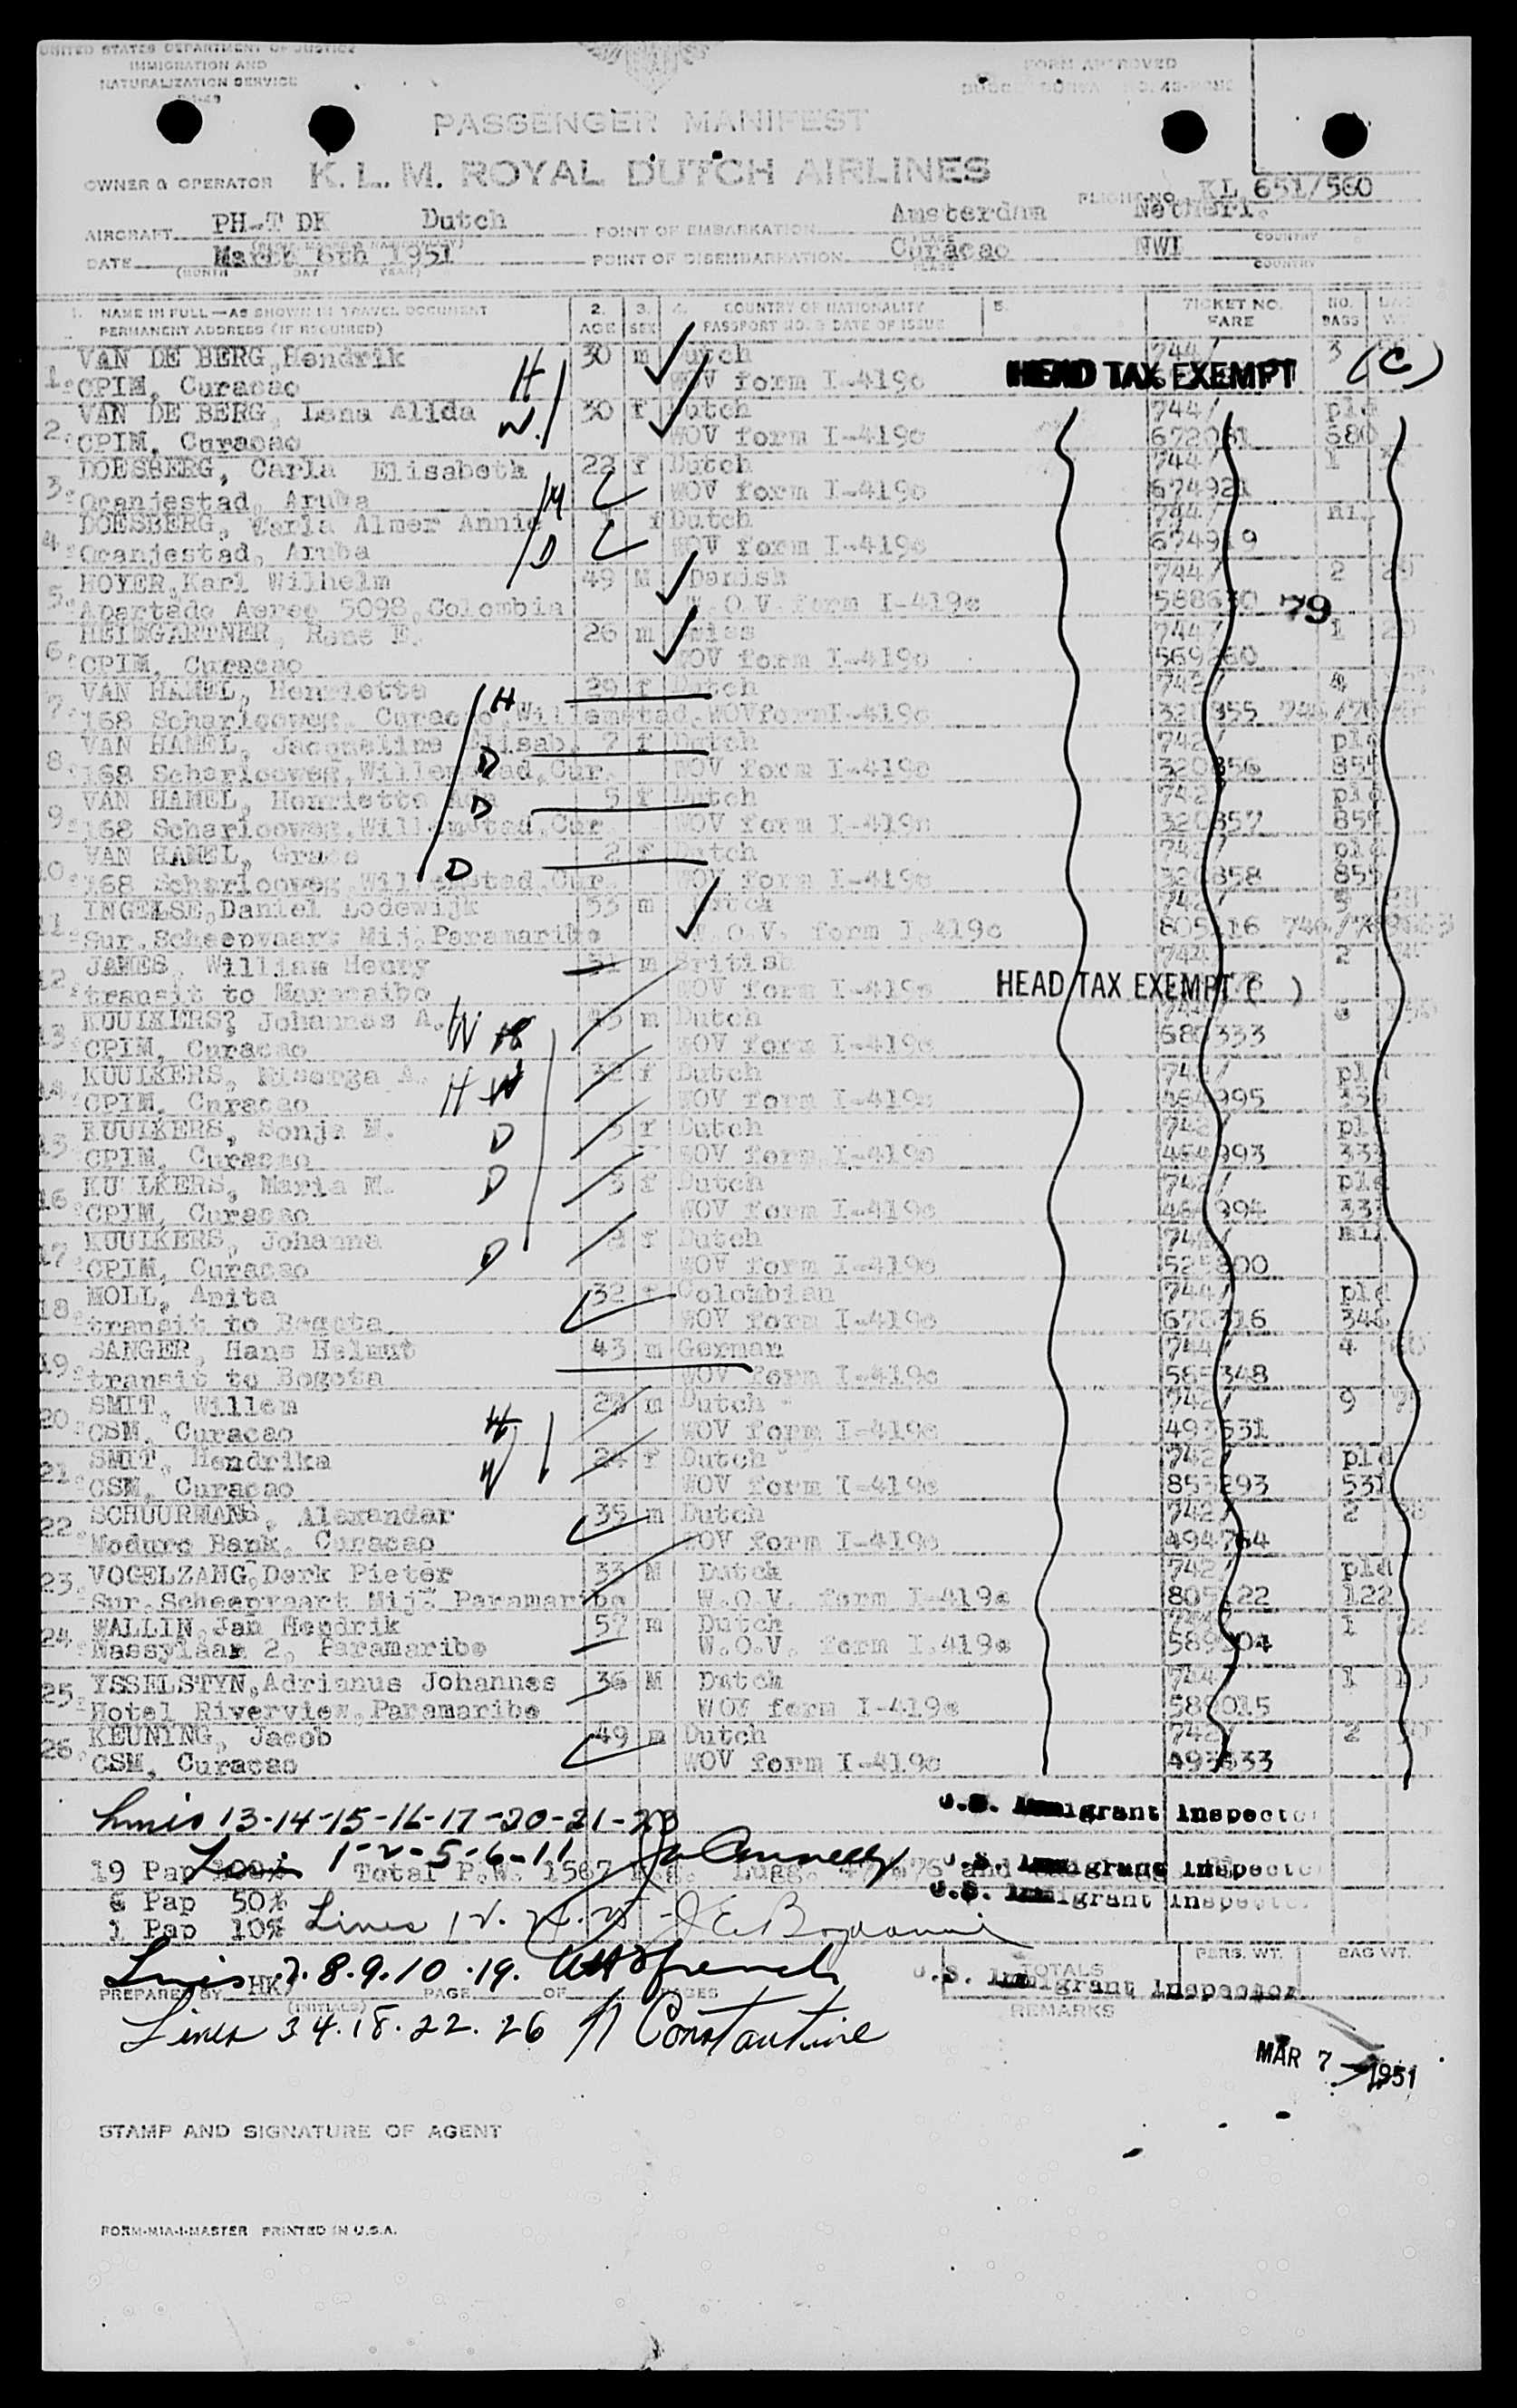 UNITED STATES DEPARTMENT OF JUSTICE
IMMIGRATION AND
NATURALIZATION SERVICE
FORM APPROVED
PASSENGER MANIFEST
OWNER & OPERATOR K. L. M. ROYAL DUTCH AIRLINES
FLIGHT NO. KL 651/560
AIRCRAFT PH-T DK Dutch POINT OF EMBARKATION Amsterdam Netherl.
PLACE COUNTRY
DATE March 6th 1951 POINT OF DISEMBARKATION Curacao NWI
(MONTH DAY YEAR) PLACE COUNTRY
1. NAME IN FULL—AS SHOWN IN TRAVEL DOCUMENT 2. 3. 4. COUNTRY OF NATIONALITY 5. TICKET NO. NO.
PERMANENT ADDRESS (IF REQUIRED) AGE SEX PASSPORT NO. & DATE OF ISSUE FARE BAGS
VAN DE BERG, Hendrik 30 m Dutch 744/ 3
1. CPIM, Curacao H WOV form I-419c HEAD TAX EXEMPT (C)
VAN DE BERG, Lena Alida 30 f Dutch 744/ pld
2. CPIM, Curacao W. WOV form I-419c 672081 680
DOESBERG, Carla Elisabeth 22 f Dutch 744/ 1
3. Oranjestad, Aruba M WOV form I-419c 674921
DOESBERG, Almer Annie f Dutch 744/
4. Oranjestad, Aruba D WOV form I-419c 674919
HOYER, Karl Wilhelm 49 M Danish 744/ 2
5. Apartado Aereo 5098, Colombia W.O.V. form I-419c 588630 79
HEIMGARTNER, Rene E. 26 m Swiss 744/ 1
6. CPIM, Curacao WOV form I-419c 569260
VAN HAMEL, Henriette H 29 f Dutch 742/ 4
7. 168 Scharlooweg, Curacao, Willemstad, WOV form I-419c
VAN HAMEL, Jacqueline Elisab. 7 f Dutch 742/ pld
8. 168 Scharlooweg, Willemstad, Cur. D WOV form I-419c 320856 855
VAN HAMEL, Henriette D 5 f Dutch 742/ pld
9. 168 Scharlooweg, Willemstad, Cur WOV form I-419c 320857 855
VAN HAMEL, Grace 2 f Dutch 742/ pld
10. 168 Scharlooweg, Willemstad, Cur. D WOV form I-419c 320858 855
INGELSE, Daniel Lodewijk 53 m Dutch 742/ 5
11. Sur. Scheepvaart Mij. Paramaribo W.O.V. form I.419c
JAMES, William Henry 31 m British 744/ 2
12. transit to Maracaibo WOV form I-419c HEAD TAX EXEMPT ( )
KUUIKERS, Johannes A. W H m Dutch
13. CPIM, Curacao WOV form I-419c
KUUIKERS, A. H W 32 f Dutch 742/ pld
14. CPIM, Curacao WOV form I-419c 464995
KUUIKERS, Sonja M. D f Dutch 742/ pld
15. CPIM, Curacao WOV form I-419c 464993 333
KUUIKERS, Maria M. D 3 f Dutch 742/ pld
16. CPIM, Curacao WOV form I-419c 464994 333
KUUIKERS, Johanna D f Dutch
17. CPIM, Curacao WOV form I-419c
MOLL, Anita 32 f Colombian 744/ pld
18. transit to Bogota WOV form I-419c 678316
SANGER, Hans Helmut 43 m German 744/ 4
19. transit to Bogota WOV form I-419c 565348
SMIT, Willem H m Dutch 742/ 9
20. CSM, Curacao WOV form I-419c 493531
SMIT, Hendrika W 24 f Dutch 742/ pld
21. CSM, Curacao WOV form I-419c 853293 531
SCHUURMANS, Alexander 35 m Dutch 742/ 2
22. Moduro Bank, Curacao WOV form I-419c 494764
VOGELZANG, Derk Pieter 33 M Dutch 742/ pld
23. Sur. Scheepvaart Mij. Paramaribo W.O.V. form I-419c 805122 122
WALLIN, Jan Hendrik 57 m Dutch 744/ 1
24. Nassylaan 2, Paramaribo W.O.V. form I.419c 589004
YSSELSTYN, Adrianus Johannes 36 M Dutch 744/ 1
25. Hotel Riverview, Paramaribo WOV form I-419c 589015
KEUNING, Jacob 49 m Dutch 742/ 2
26. CSM, Curacao WOV form I-419c 493433
Lines 13-14-15-16-17-20-21-23 U.S. Immigrant Inspector
Lines 1-2-5-6-11
19 Pap 100% Total P.W. 1567 Kg. Lugg. U.S. Immigrant Inspector
6 Pap 50% U.S. Immigrant Inspector
1 Pap 10% Lines 12. 24. 25
TOTALS PERS. WT. BAG WT.
Lines 7.8.9.10.19. French
PREPARED BY HK/ PAGE OF PAGES U.S. Immigrant Inspector
(INITIALS) REMARKS
Lines 3 4. 18. 22. 26 Constantine
MAR 7 1951
STAMP AND SIGNATURE OF AGENT
FORM-MIA-I-MASTER PRINTED IN U.S.A.